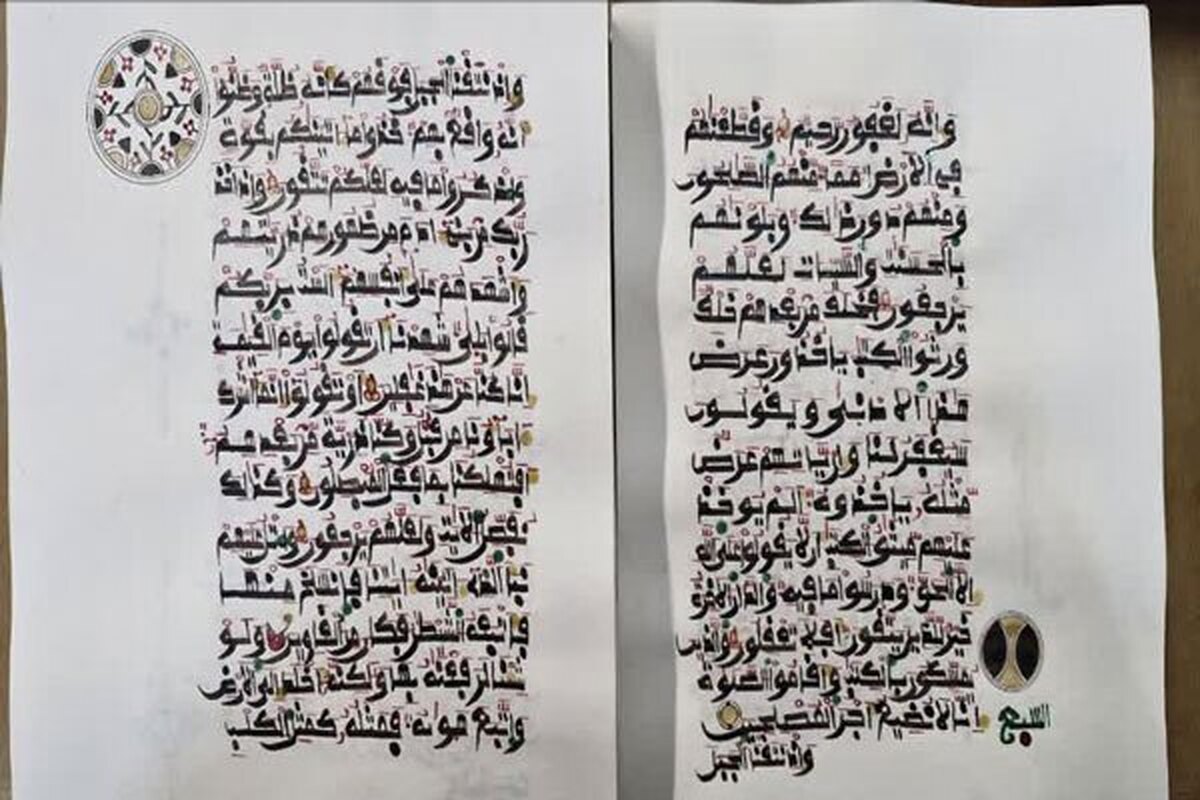 وانه لغفور رحيم وقطعنهم
في الارض امما منهم الصلحون
ومنهم دون ذلك وبلونهم
بالحسنت والسيات لعلهم
يرجعون فخلف من بعدهم خلف
ورثوا الكتب ياخذون عرض
هذا الادنى ويقولون
سيغفر لنا وان ياتهم عرض
مثله ياخذوه الم يوخذ
عليهم ميثق الكتب ان لا يقولوا على الله
الا الحق ودرسوا ما فيه والدار الاخرة
خير للذين يتقون افلا تعقلون والذين
يمسكون بالكتب واقاموا الصلوة
انا لا نضيع اجر المصلحين
السبع
واذ نتقنا الجبل
واذ نتقنا الجبل فوقهم كانه ظلة وظنوا
انه واقع بهم خذوا ما اتينكم بقوة
واذكروا ما فيه لعلكم تتقون واذ اخذ
ربك من بني ادم من ظهورهم ذريتهم
واشهدهم على انفسهم الست بربكم
قالوا بلى شهدنا ان تقولوا يوم القيمة
انا كنا عن هذا غفلين او تقولوا انما اشرك
اباونا من قبل وكنا ذرية من بعدهم
افتهلكنا بما فعل المبطلون وكذلك
نفصل الايت ولعلهم يرجعون واتل عليهم
نبا الذي اتينه ايتنا فانسلخ منها
فاتبعه الشيطن فكان من الغاوين ولو
شينا لرفعنه بها ولكنه اخلد الى الارض
واتبع هويه فمثله كمثل الكلب